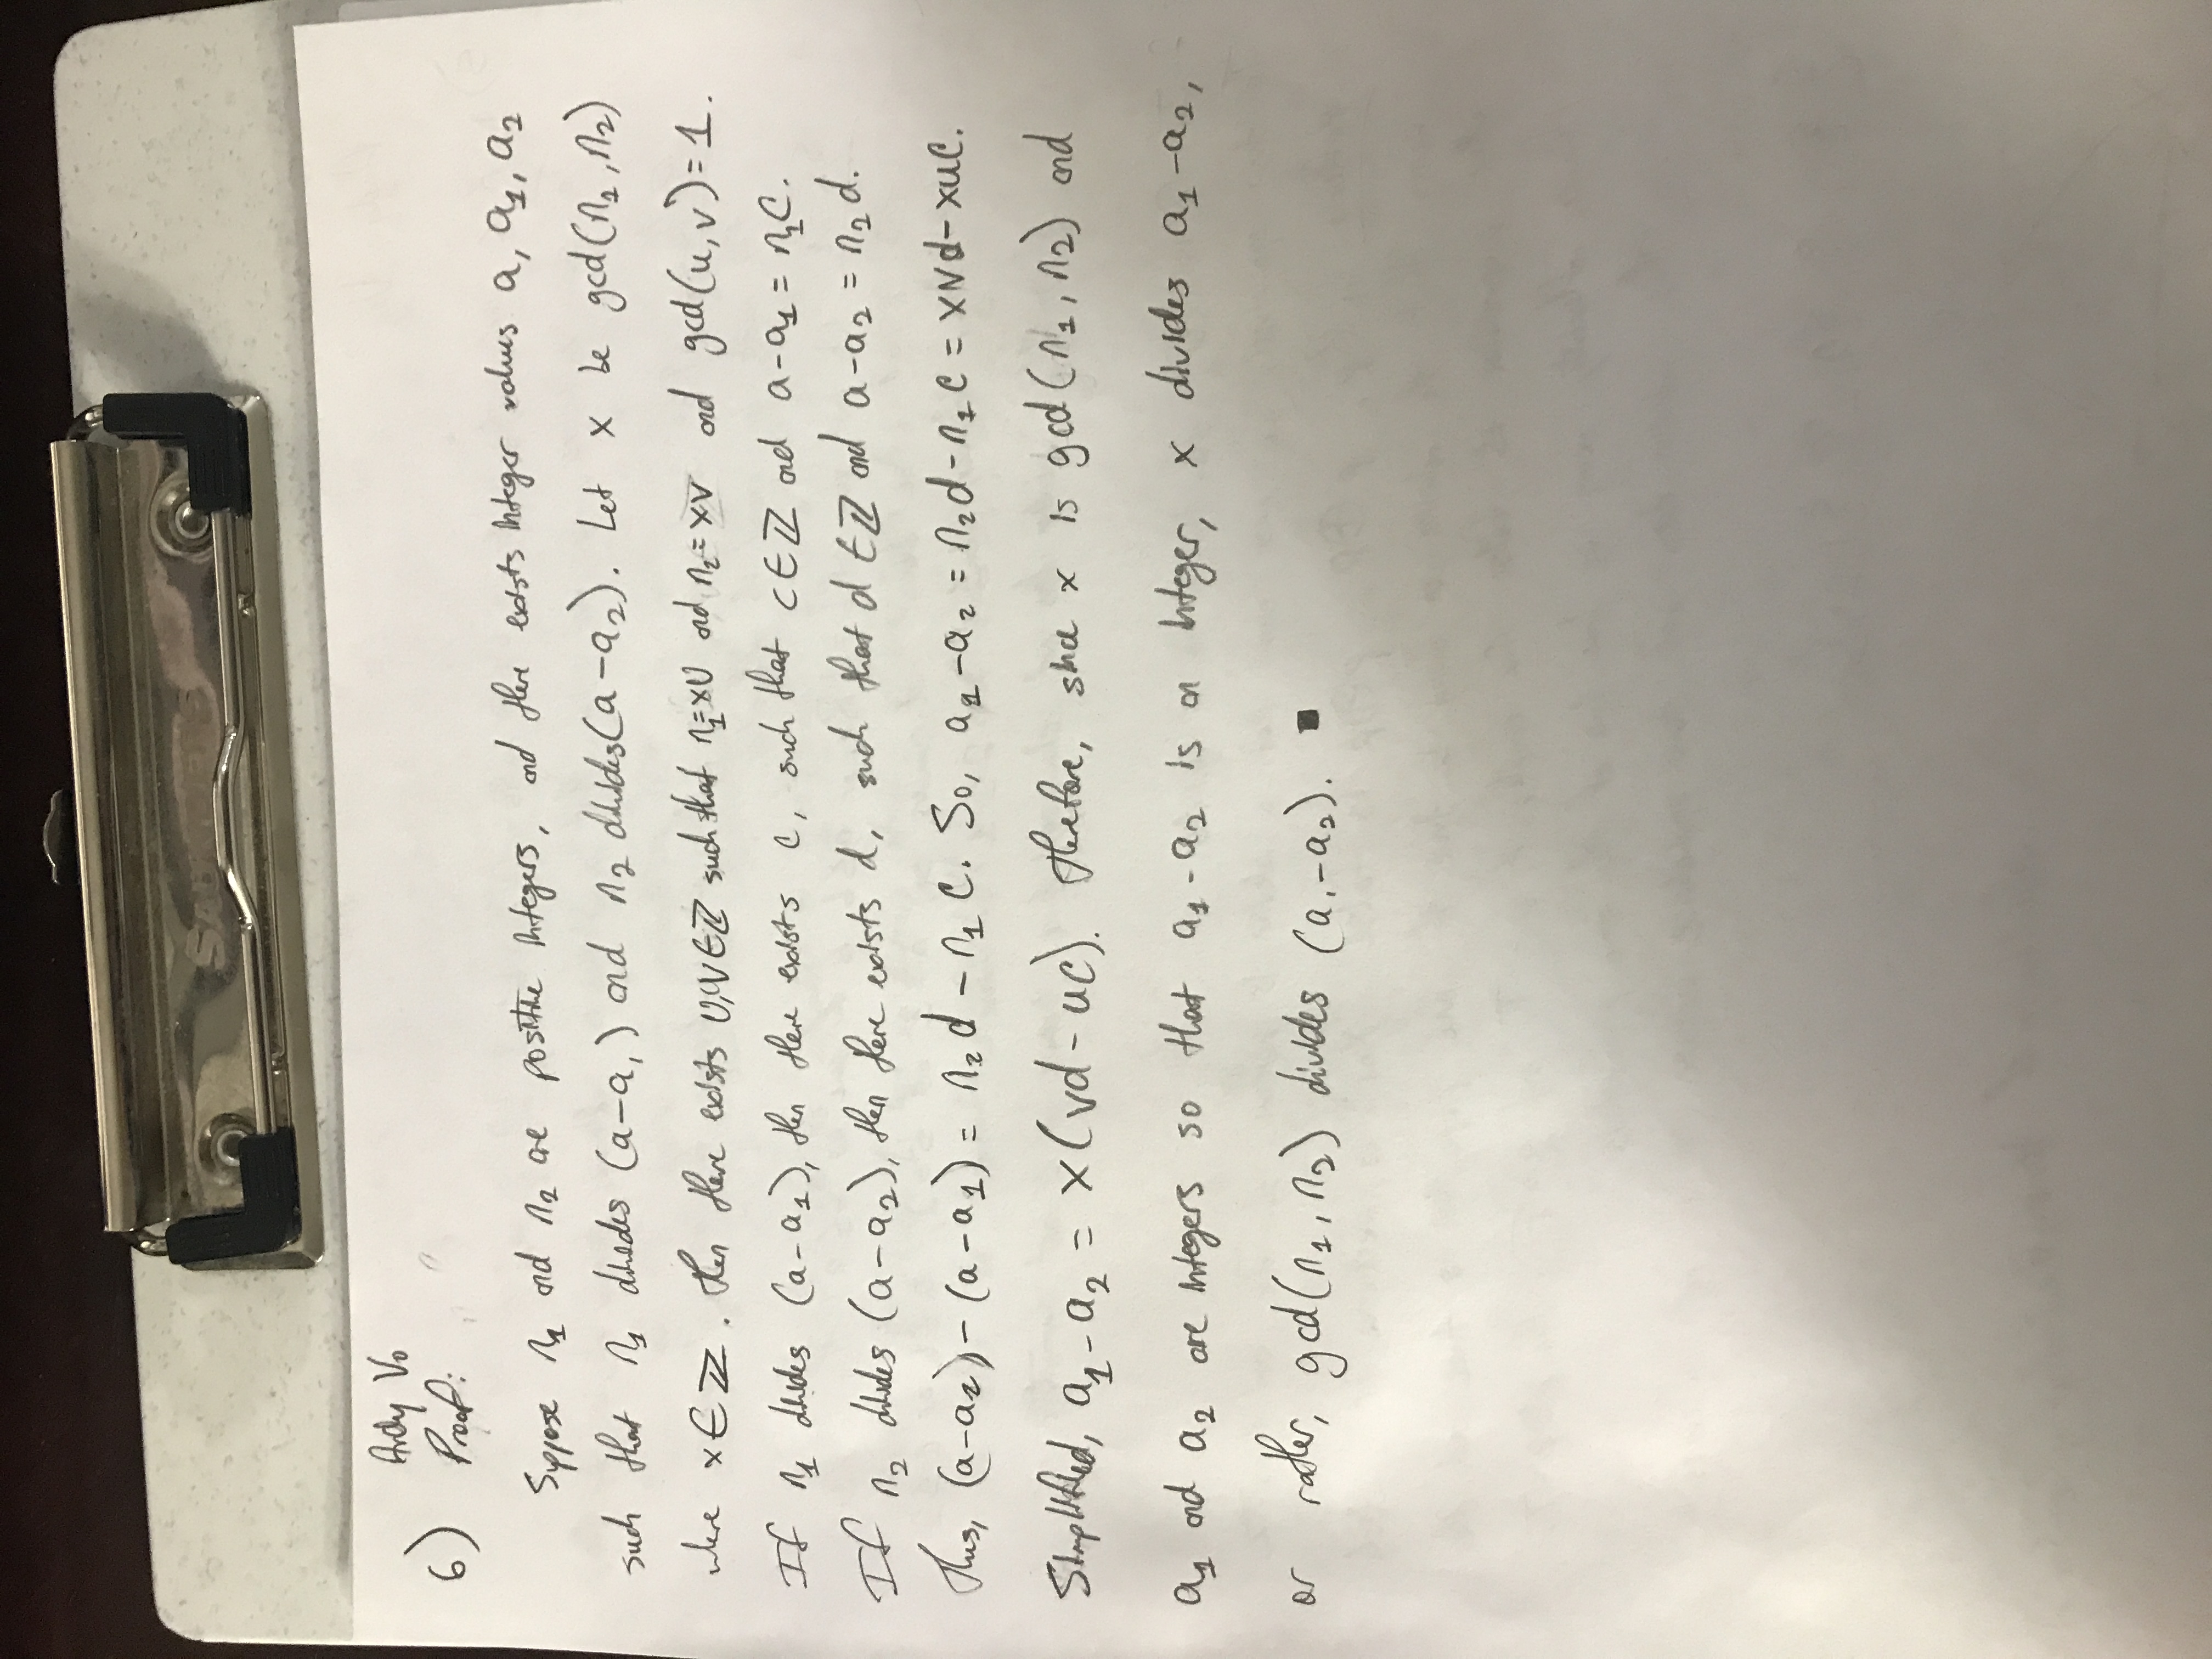 SAUNDERS
Andy Vo
6) Proof:
Suppose n₁ and n₂ are positive integers, and there exists integer values a, a₁, a₂
such that n₁ divides (a-a₁) and n₂ divides (a-a₂). Let x be gcd(n₁, n₂)
where x∈ℤ. Then there exists u,v∈ℤ such that n₁=xu and n₂=xv and gcd(u,v)=1.
If n₁ divides (a-a₁), then there exists c, such that c∈ℤ and a-a₁=n₁c.
If n₂ divides (a-a₂), then there exists d, such that d∈ℤ and a-a₂=n₂d.
Thus, (a-a₂)-(a-a₁) = n₂d-n₁c. So, a₁-a₂ = n₂d-n₁c = xvd-xuc.
Simplified, a₁-a₂ = x(vd-uc). Therefore, since x is gcd(n₁, n₂) and
a₁ and a₂ are integers so that a₁-a₂ is an integer, x divides a₁-a₂,
or rather, gcd(n₁, n₂) divides (a₁-a₂). ■